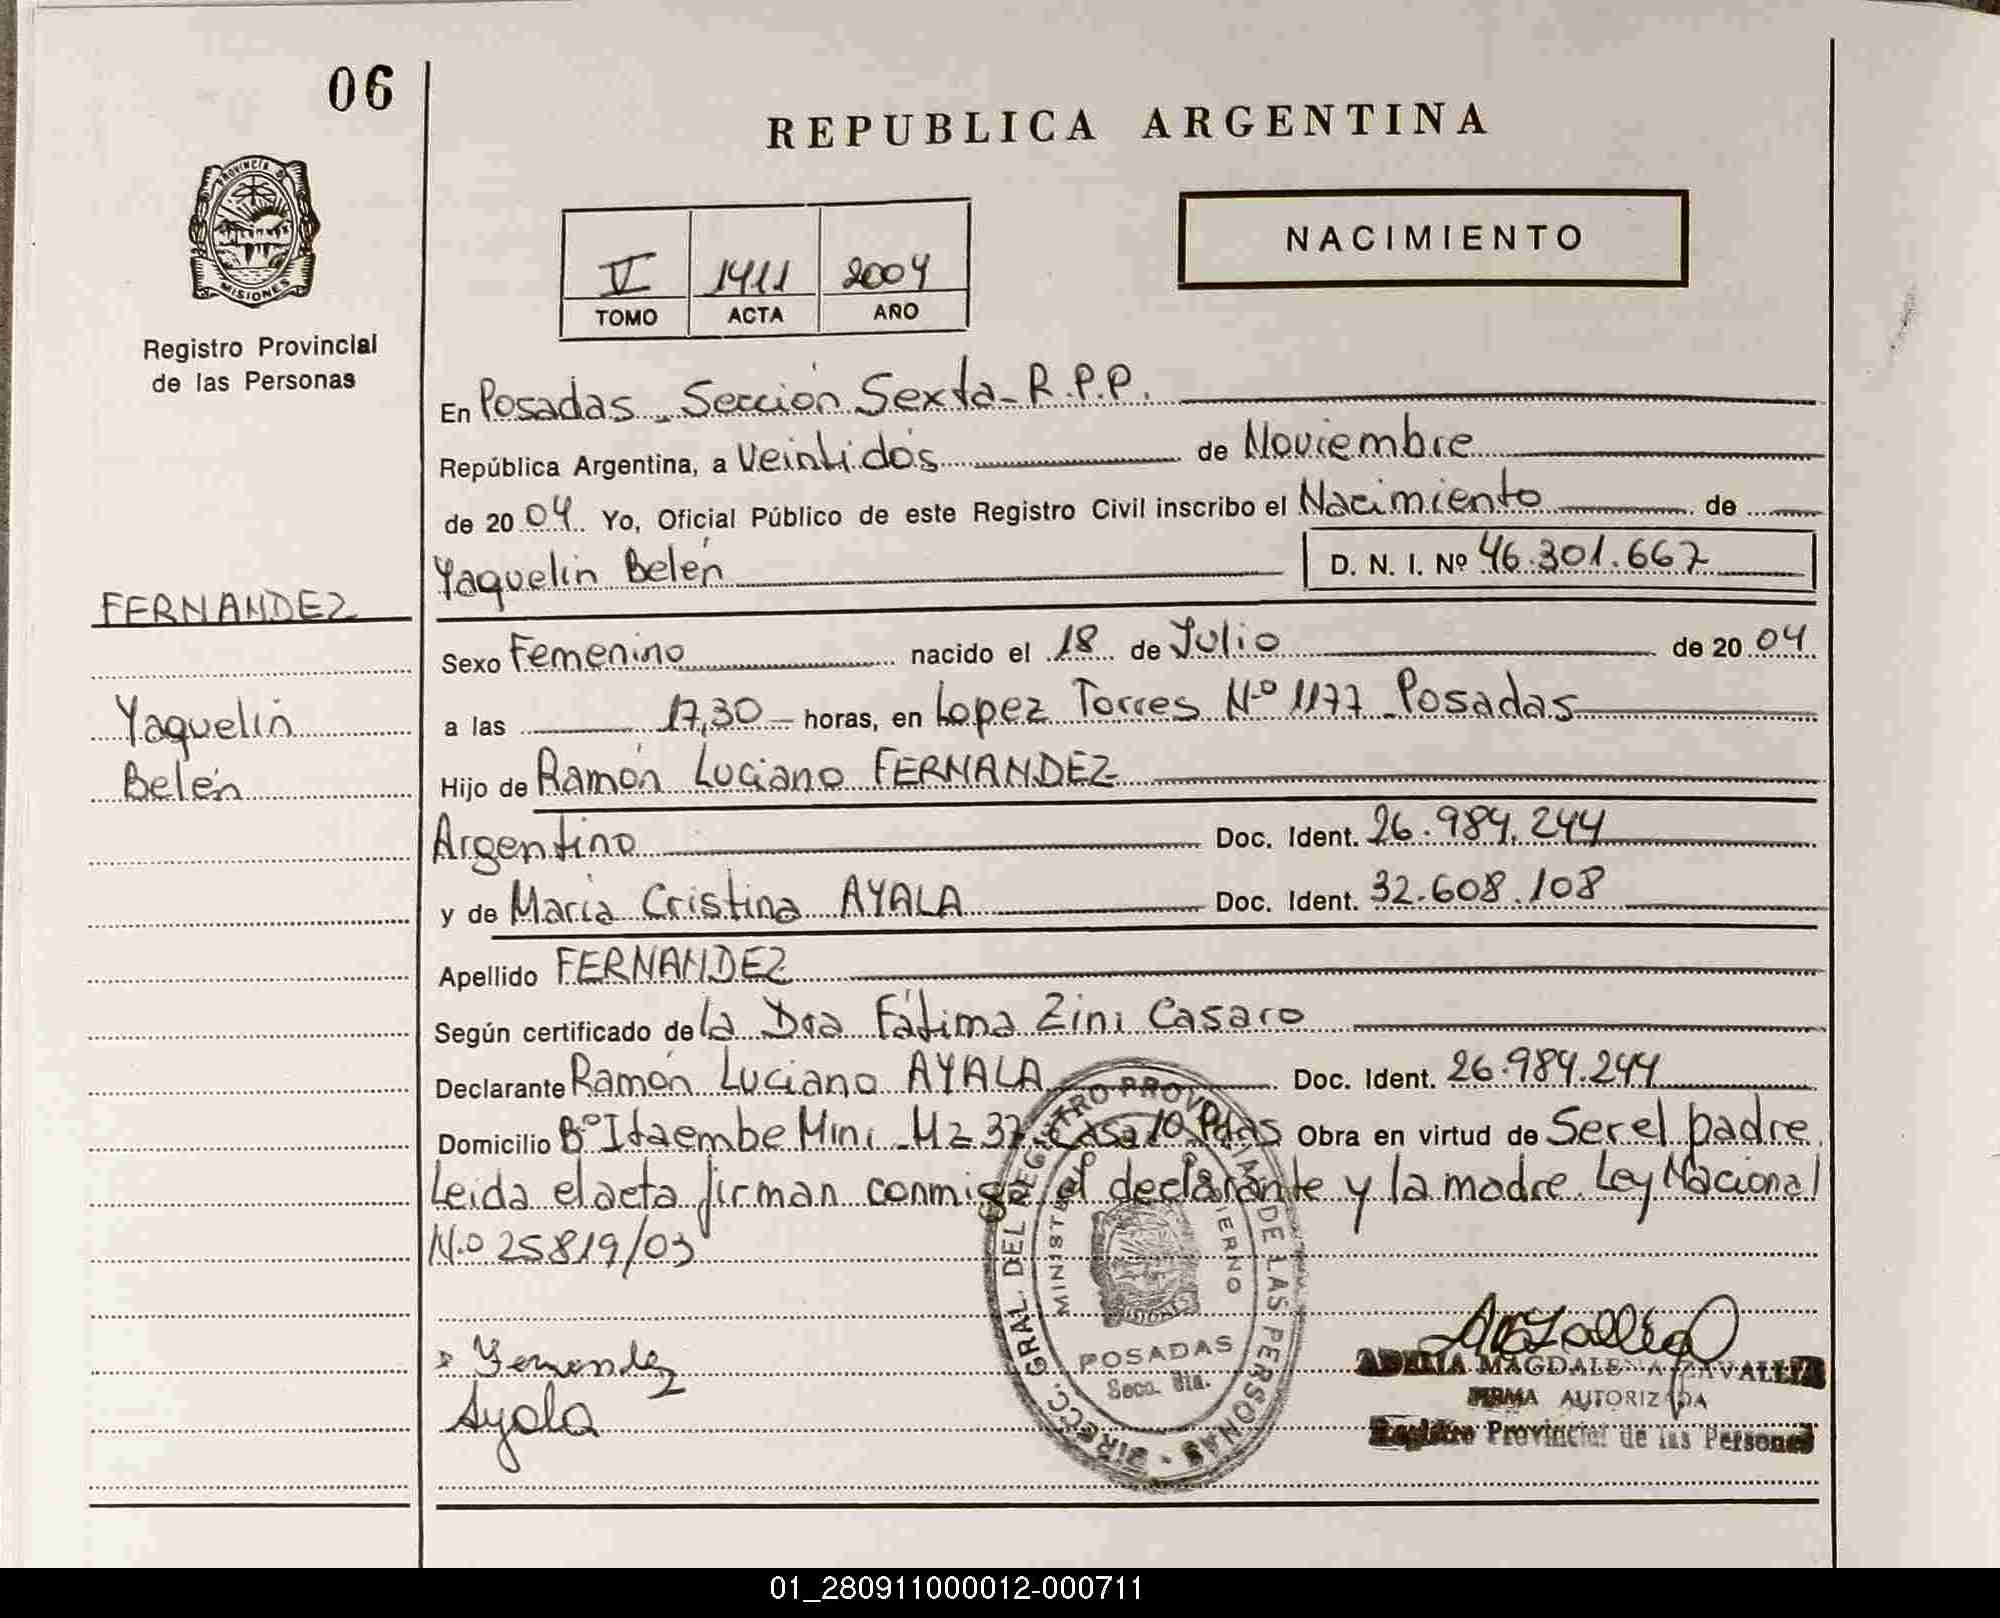 06
REPUBLICA ARGENTINA
NACIMIENTO
PROVINCIA DE
MISIONES
V 1411 2004
TOMO ACTA AÑO
Registro Provincial
de las Personas
En Posadas - Sección Sexta - R.P.P.
República Argentina, a Veintidós de Noviembre
de 2004 Yo, Oficial Público de este Registro Civil inscribo el Nacimiento de
Yaquelin Belén D. N. I. Nº 46.301.667
FERNANDEZ
Yaquelin
Belén
Sexo Femenino nacido el 18 de Julio de 2004
a las 17,30 horas, en Lopez Torres Nº 1177 Posadas
Hijo de Ramón Luciano FERNANDEZ
Argentino Doc. Ident. 26.984.244
y de María Cristina AYALA Doc. Ident. 32.608.108
Apellido FERNANDEZ
Según certificado de la Dra Fátima Zini Casaro
Declarante Ramón Luciano AYALA Doc. Ident. 26.984.244
Domicilio Bº Itaembe Mini - Mz 37 - Casa 10 Pdas Obra en virtud de Ser el padre.
Leida el acta firman conmigo el declarante y la madre. Ley Nacional
N.º 25819/03
DIRECC. GRAL. DEL REGISTRO PROVINCIAL DE LAS PERSONAS
MINISTERIO GOBIERNO
POSADAS
Secc. 6ta.
Fernandez
Ayala
ADELIA MAGDALENA ZAVALLA
FIRMA AUTORIZADA
Registro Provincial de las Personas
01_280911000012-000711